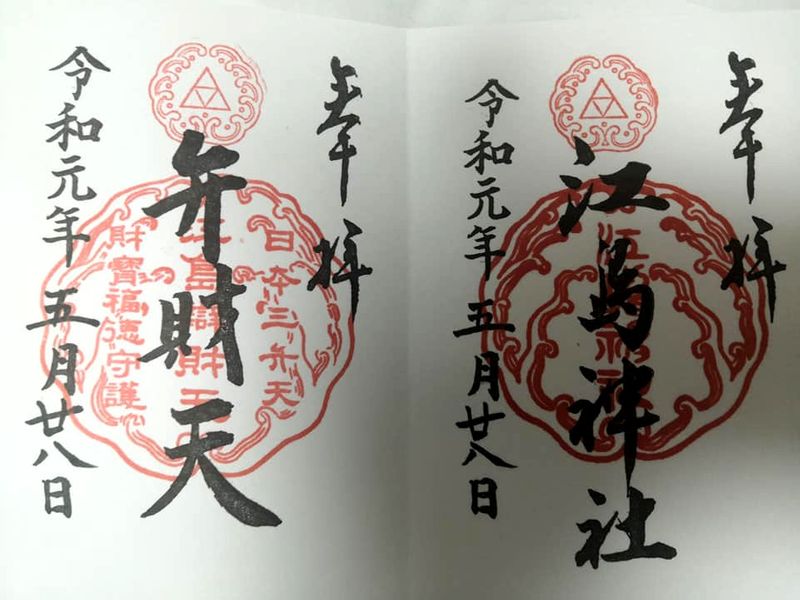 奉拝
江島神社
令和元年五月廿八日
奉拝
弁財天
日本三弁天
江島辯財天
財寶福徳守護
令和元年五月廿八日